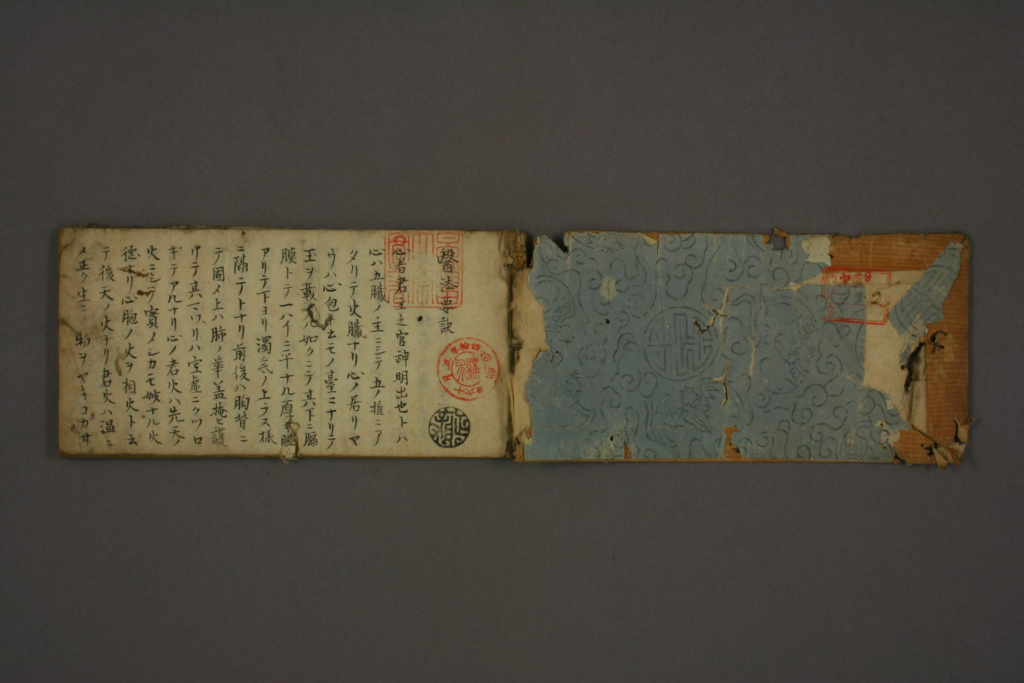 醫法要訣
心者君主之官神明出也トハ
心ハ五臓ノ主ニシテ五ノ椎ニア
タリテ火臓ナリ心ノ居リマ
ウハ心包ト云モノ臺ニナリテ
玉ヲ載ル如クニテ其下ニ膈
膜トテ一ハイニ平ナル厚キ
アリテ下ヨリ濁気ノ上ラヌ様
ニ隔テトナリ前後ハ胸背ニ
テ固メ上ハ肺ノ華蓋掩ヒ護
リテ其マワリハ空虚ニクツロ
ギテアルナリ心ノ君火ハ先天ノ
火ニシテ實ノシカモ城ナル火
徳ナリ心胞ノ火ヲ相火ト云
テ後天ノ火ナリ君火ハ温ニ
メ正ク生ニ物ヲヤ